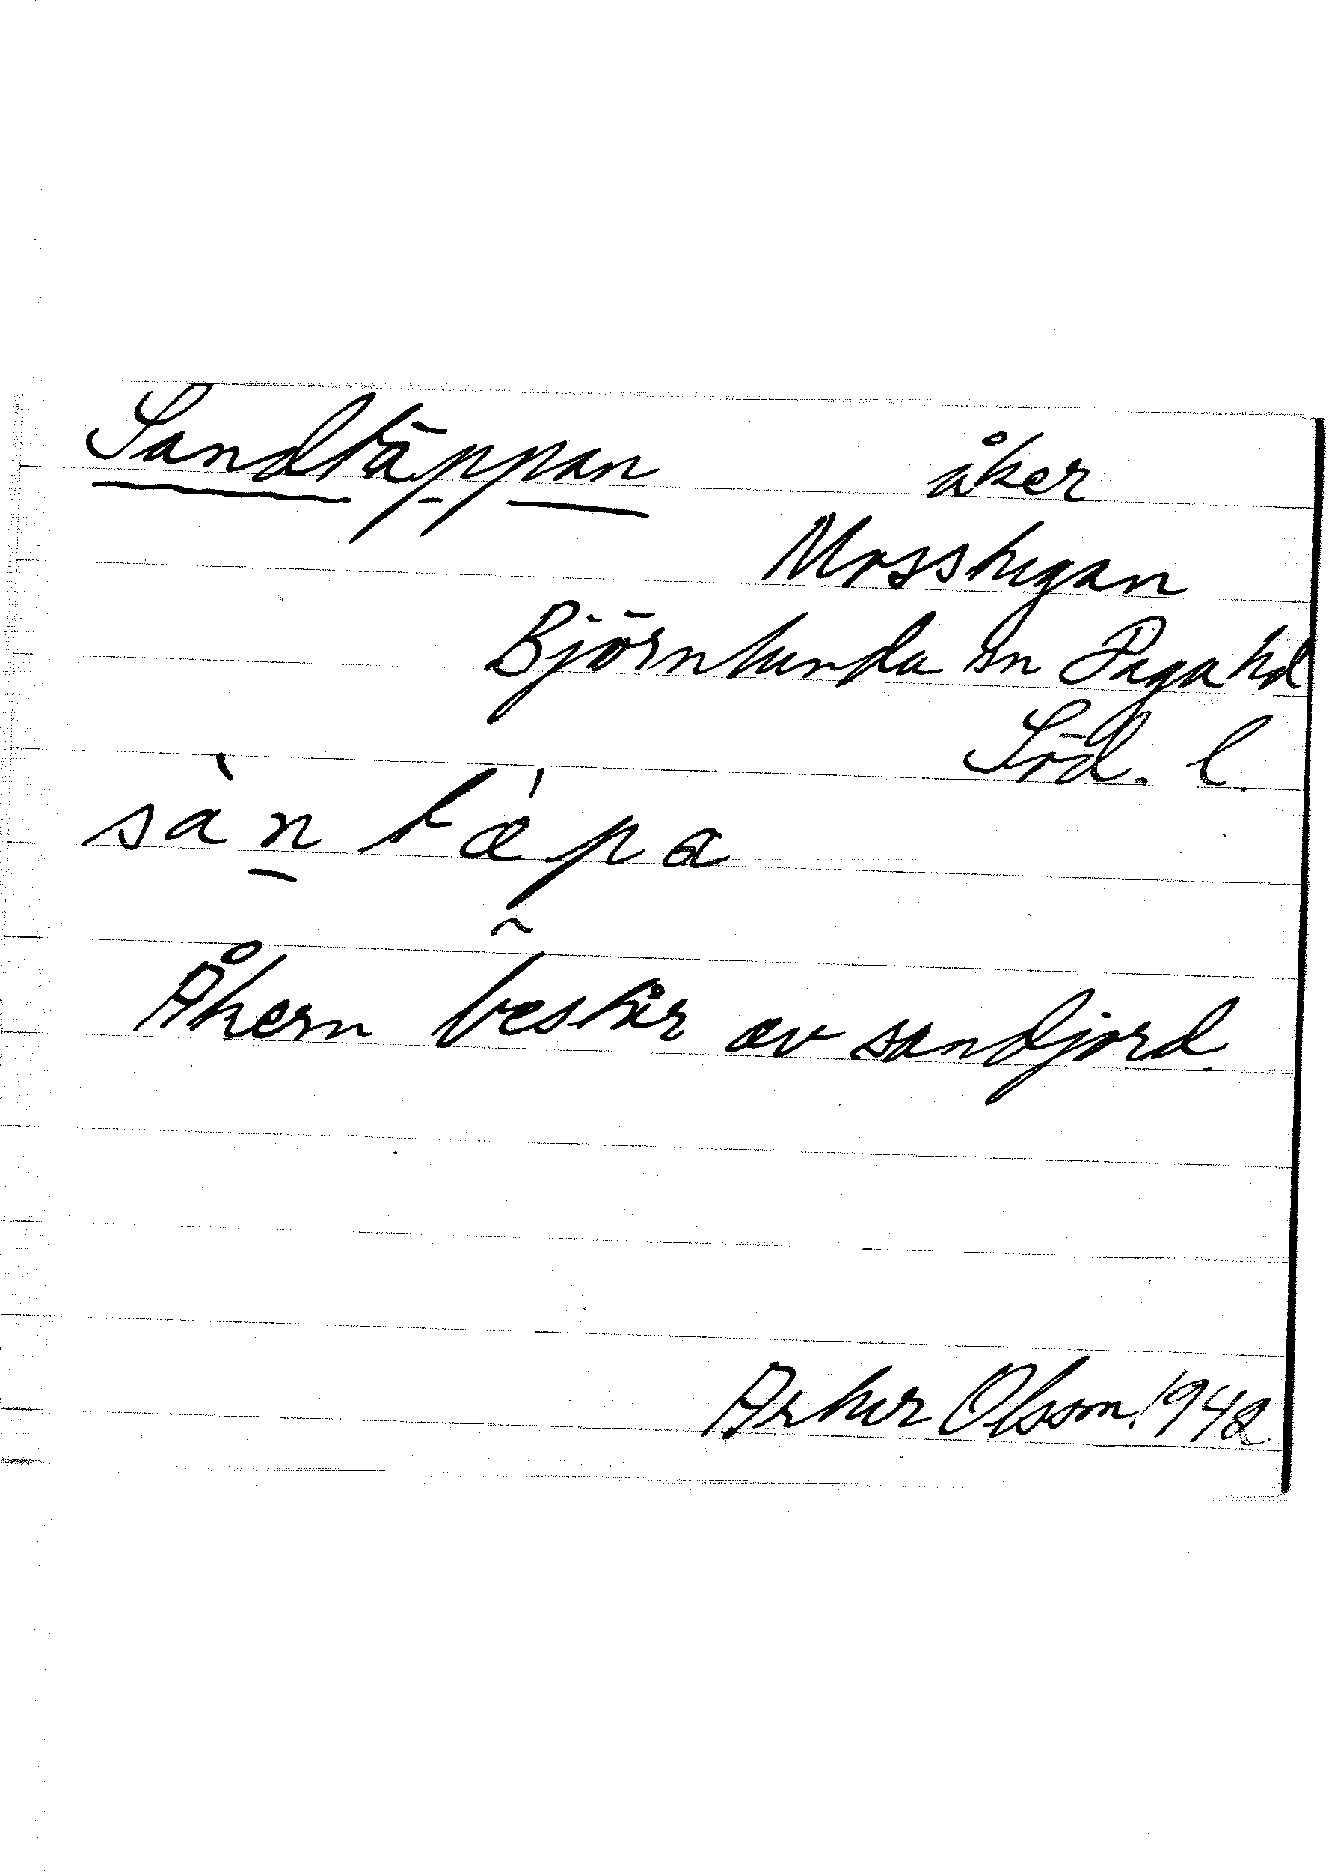 Sandtäppan åker
Mosstugan
Björnlunda sn Daga hd
Söd. l.
sàn tæ̀pa
Åkern består av sandjord.
Artur Olsson 1942